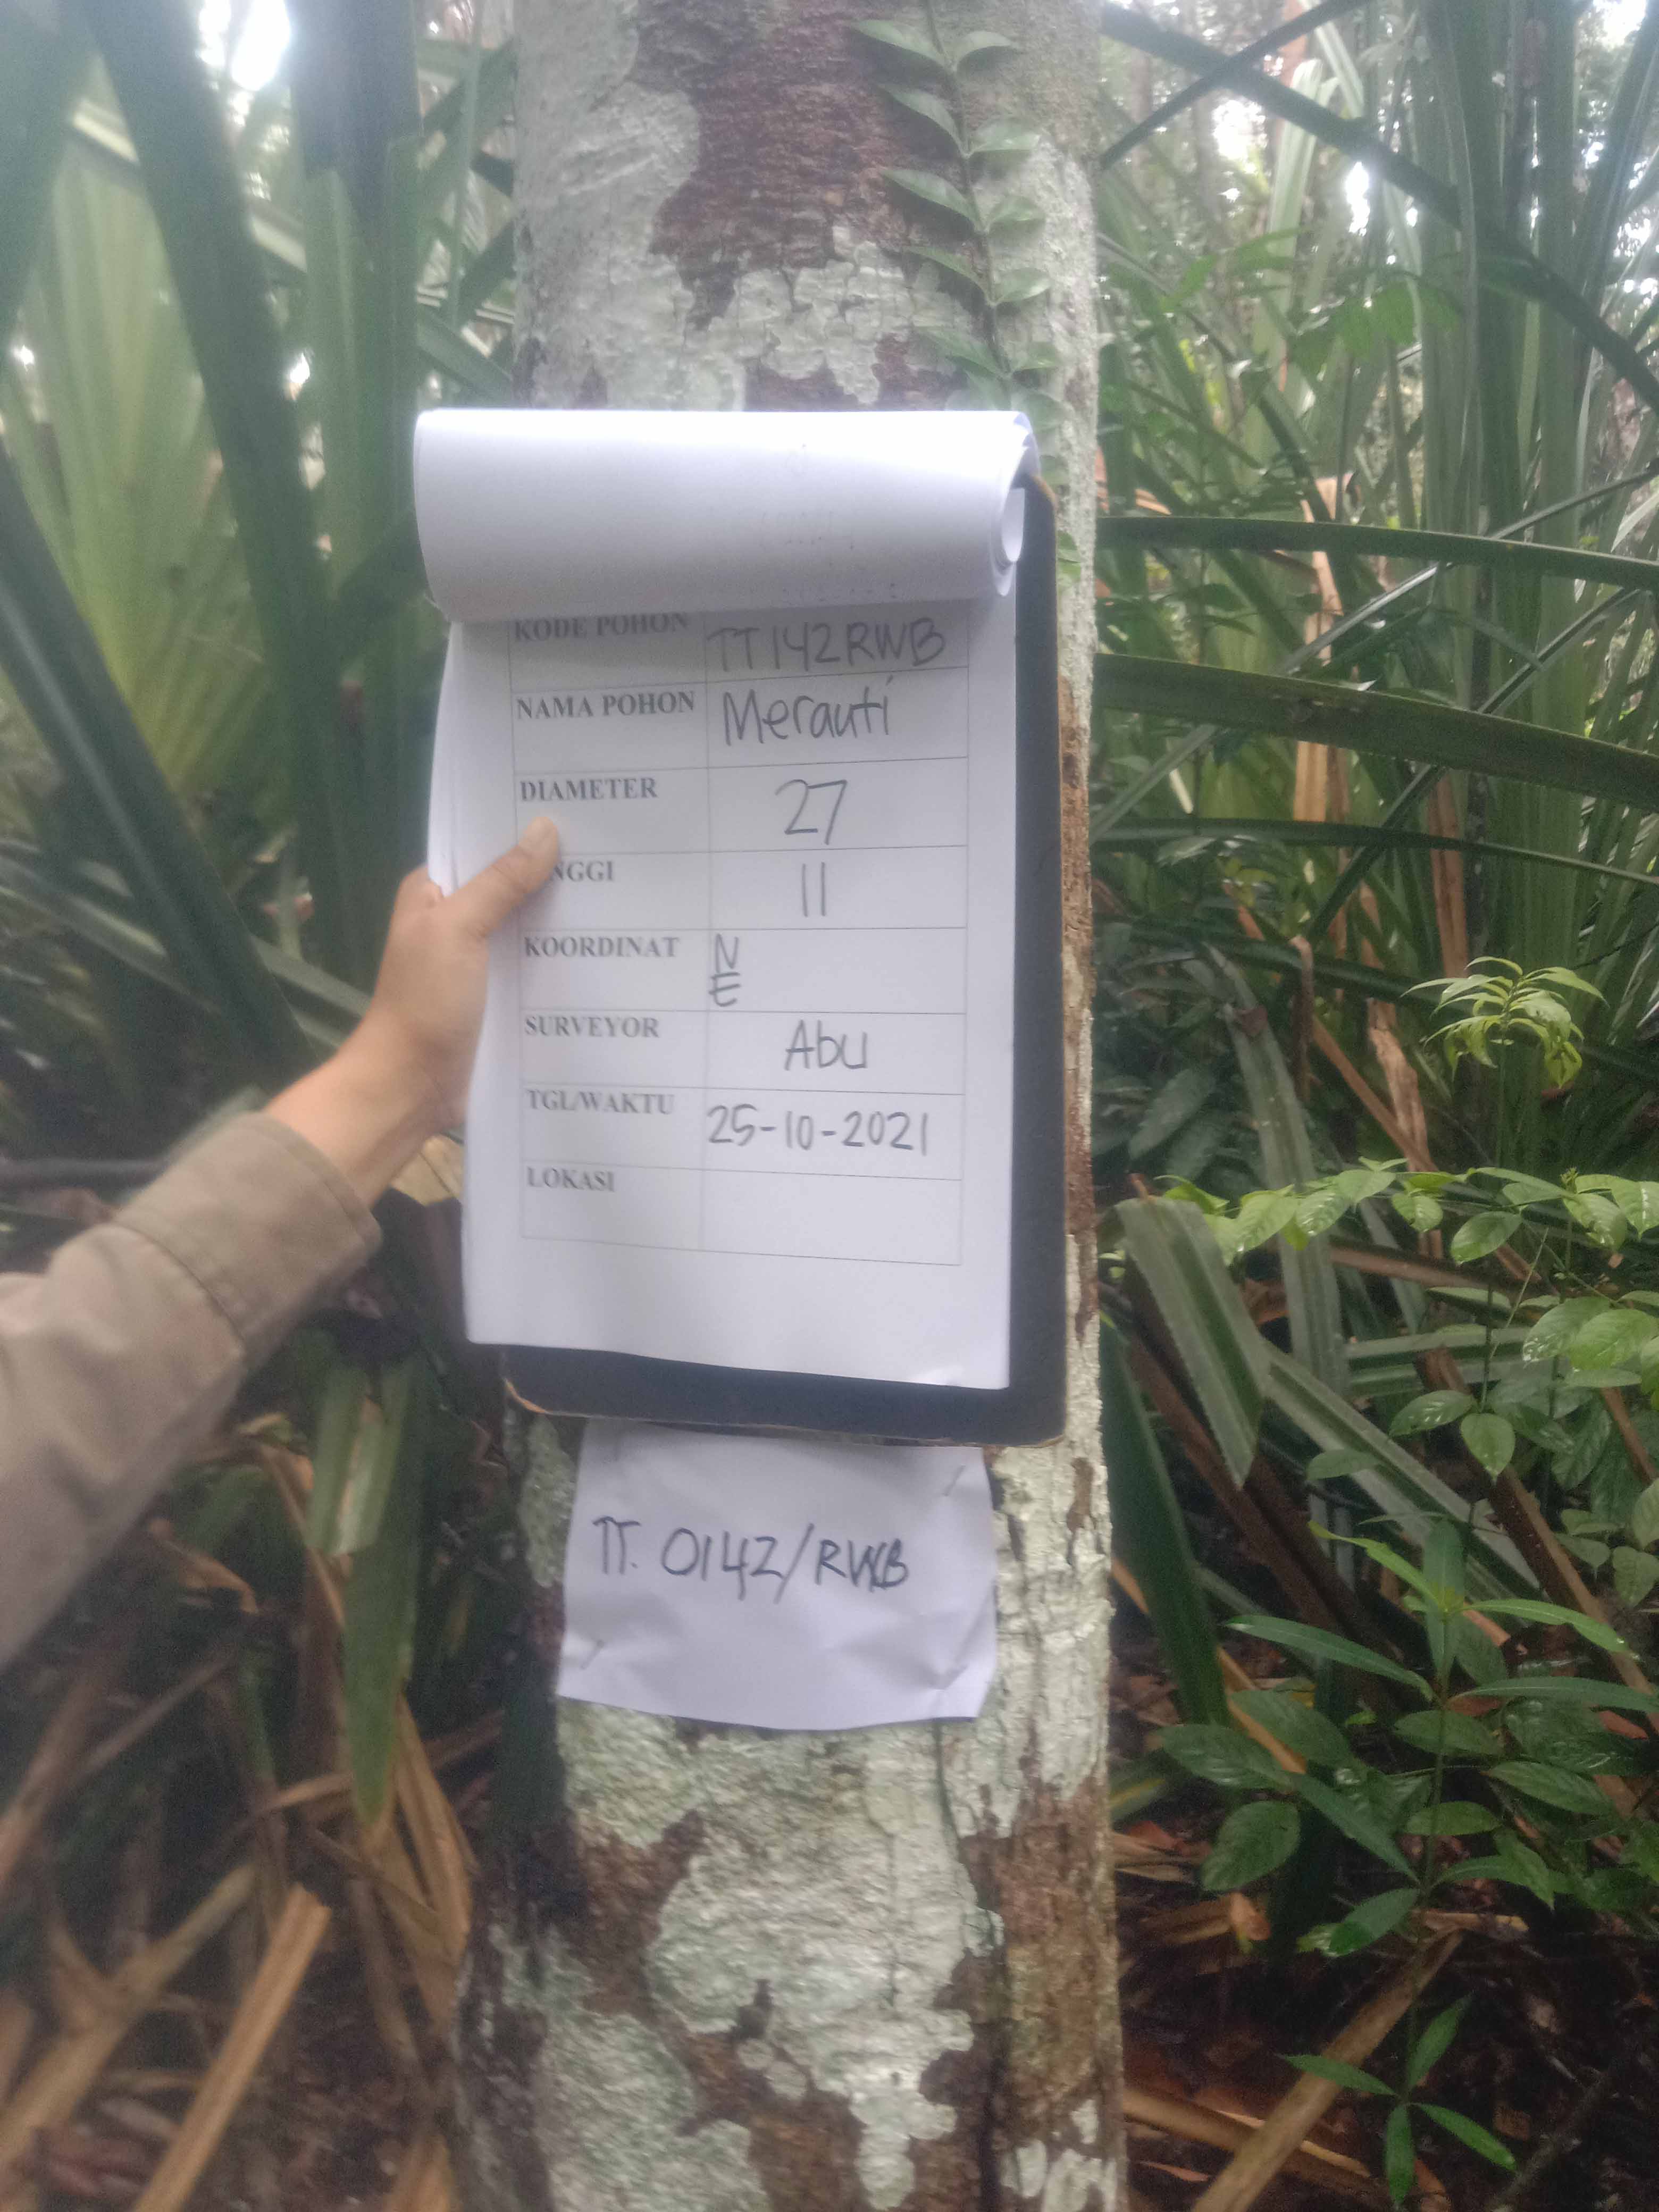 KODE POHON TT142RWB
NAMA POHON Merauti
DIAMETER 27
NGGI 11
KOORDINAT N
E
SURVEYOR Abu
TGL/WAKTU 25-10-2021
LOKASI
TT. 0142/RWB